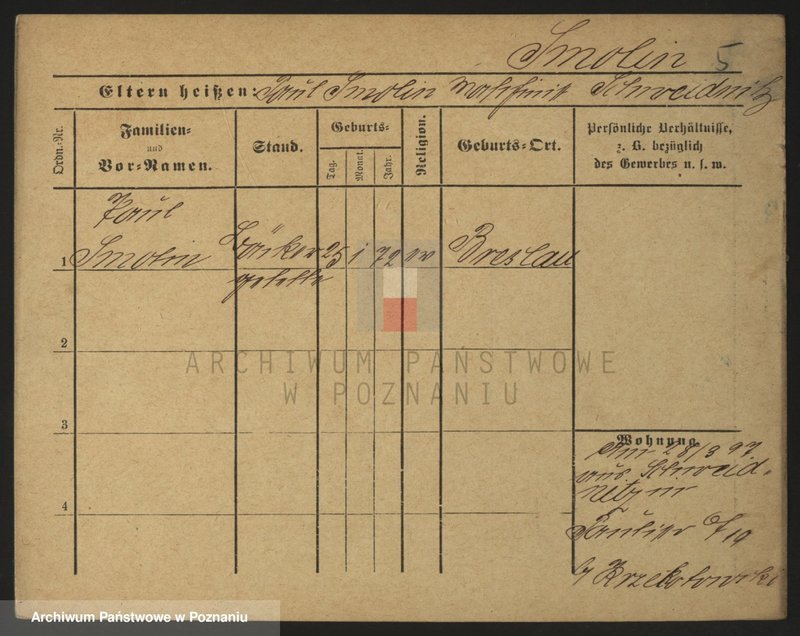 Smolin 5
Eltern heißen: Paul Smolin Schweidnitz
Ordn.-Nr.
Familien-
und
Vor-Namen.
Stand.
Geburts-
Tag.
Monat.
Jahr.
Religion.
Geburts-Ort.
Persönliche Verhältnisse,
z. B. bezüglich
des Gewerbes u. s. w.
Paul
1 Smolin Bäcker 25 1 72 ev Breslau
geselle
2
3
4
Wohnung
Am 28/3 97
aus Schweid-
nitz
19
Krzekotowski
ARCHIWUM PAŃSTWOWE
W POZNANIU
Archiwum Państwowe w Poznaniu